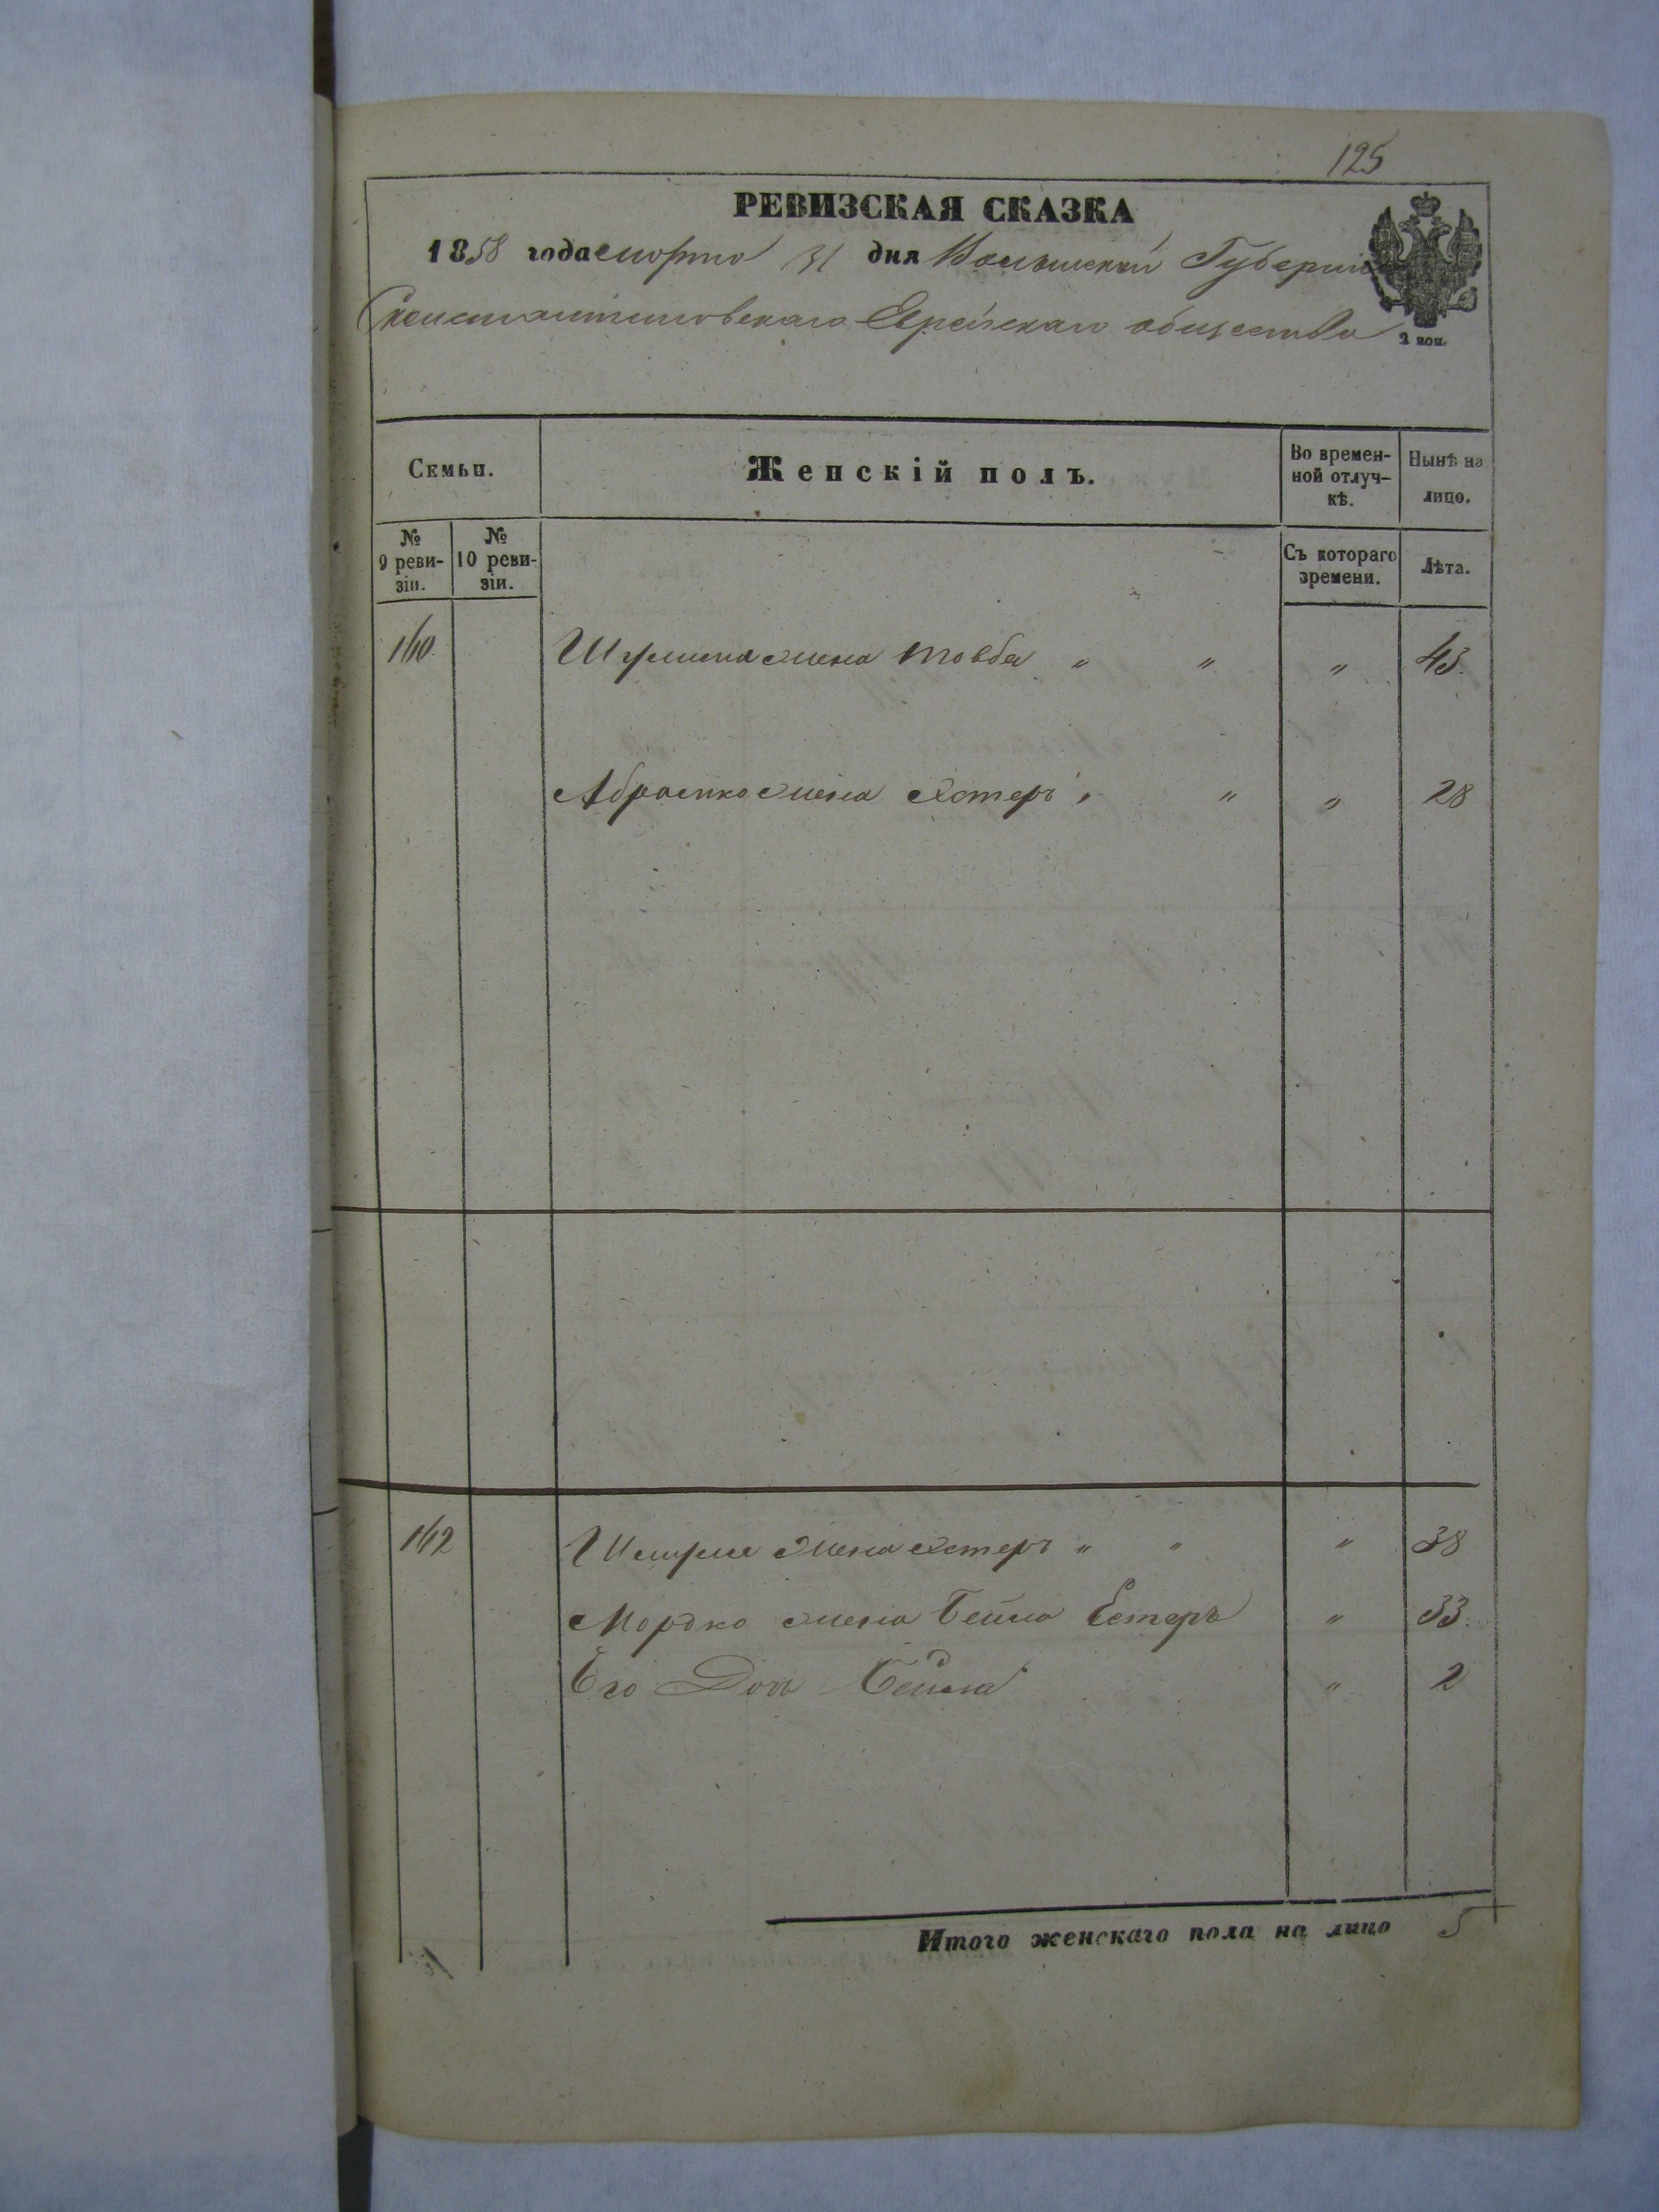 125
РЕВИЗСКАЯ СКАЗКА
1858 года марта 31 дня Волынской Губернии
Константиновскаго Еврейскаго общества
2 коп.
Семьи.
Женскій полъ.
Во времен-
ной отлуч-
кѣ.
Нынѣ на
лицо.
№
9 реви-
зіи.
№
10 реви-
зіи.
Съ котораго
времени.
Лѣта.
160 жена Товба " " " 43.
Абрамка жена Эстеръ " " " 28
162 жена Эстеръ " " " 38
Мордко жена Бейла Естеръ " 33.
Его Дочь Бейла " 2
Итого женскаго пола на лицо 5